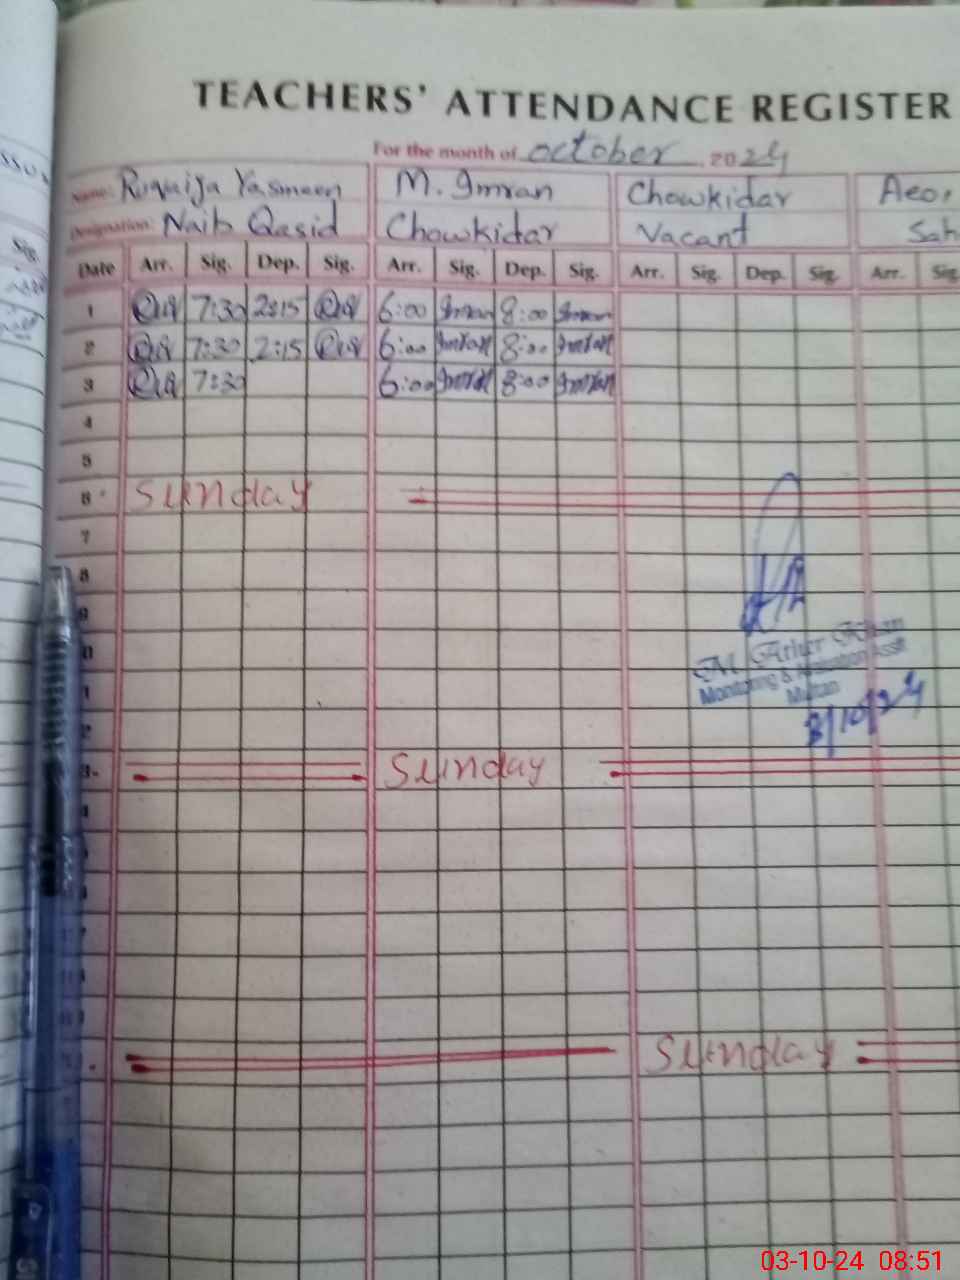 TEACHERS' ATTENDANCE REGISTER
For the month of October, 2024
Name: Yasmeen M. Imran Chowkidar Aeo,
Designation: Naib Qasid Chowkidar Vacant Sah
Date Arr. Sig. Dep. Sig. Arr. Sig. Dep. Sig. Arr. Sig. Dep. Sig. Arr. Sig
1 7:30 2:15 6:00 Imran 8:00 Imran
2 7:30 2:15 6:00 Imran 8:00 Imran
3 7:30 6:00 Imran 8:00 Imran
4
5
6 Sunday
7
8
9
0
1
2
3 Sunday
M Khan
Monitoring & Asstt
Multan
3/10/24
Sunday
Sig.
03-10-24 08:51